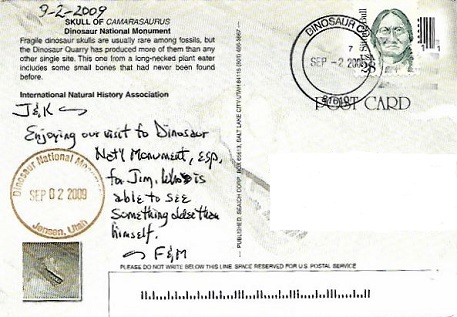 9-2-2009
SKULL OF CAMARASAURUS
Dinosaur National Monument
Fragile dinosaur skulls are usually rare among fossils, but
the Dinosaur Quarry has produced more of them than any
other single site. This one from a long-necked plant eater
includes some small bones that had never been found
before.
International Natural History Association
J&K
Enjoying our visit to Dinosaur
Nat'l Monument, esp.
for Jim. Who is
able to see
something older than
himself.
~ F&M
Dinosaur National Monument
SEP 02 2009
Jensen, Utah
PUBLISHED: SEARCH CORP. BOX SALT LAKE CITY, UTAH 84115
DINOSAUR CO
7
SEP -2 2009
81610
POST CARD
PLEASE DO NOT WRITE BELOW THIS LINE. SPACE RESERVED FOR U.S. POSTAL SERVICE